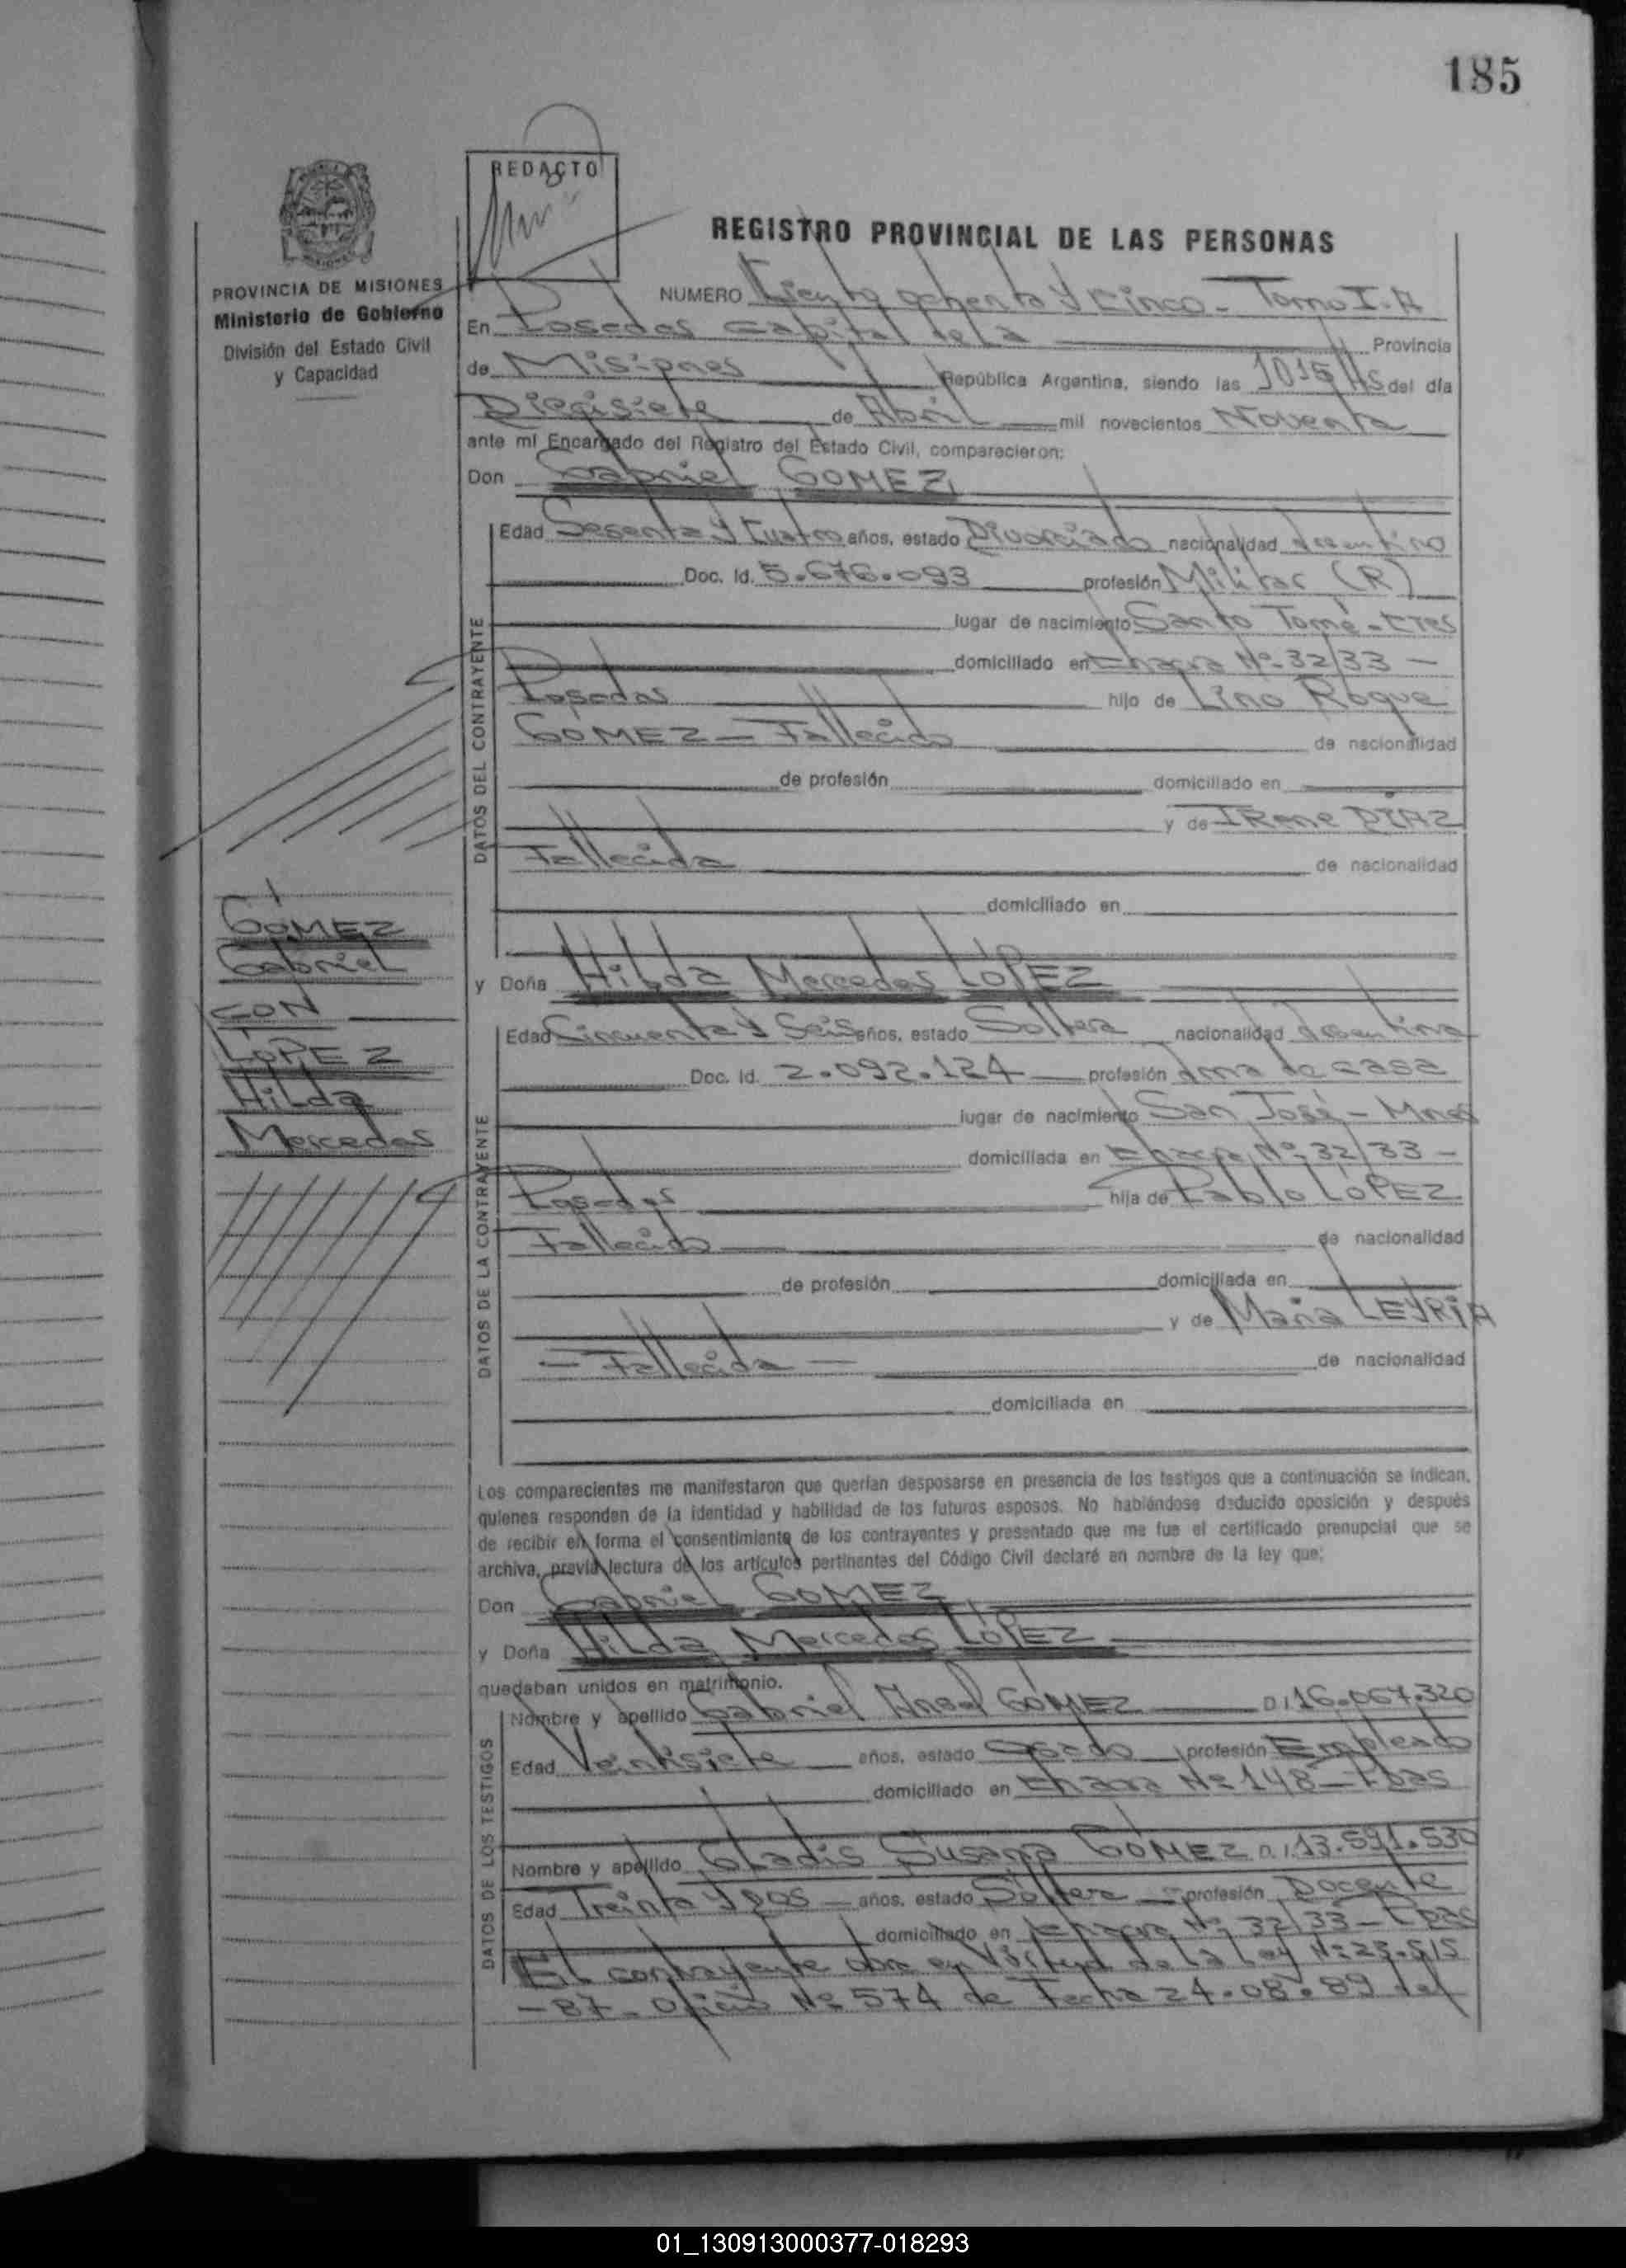 185
REDACTO
REGISTRO PROVINCIAL DE LAS PERSONAS
PROVINCIA DE MISIONES
Ministerio de Gobierno
División del Estado Civil
y Capacidad
NUMERO Ciento ochenta y cinco - Tomo I-A
En Posadas Capital de la Provincia
de Misiones República Argentina, siendo las 1015 Hs del día
Diecisiete de Abril mil novecientos Noventa
ante mí Encargado del Registro del Estado Civil, comparecieron:
Don Gabriel GOMEZ
DATOS DEL CONTRAYENTE
Edad Sesenta y Cuatro años, estado Divorciado nacionalidad Argentino
Doc. Id. 5.676.093 profesión Militar (R)
lugar de nacimiento Santo Tomé - Ctes
domiciliado en Chacra Nº 32/33 -
Posadas hijo de Lino Roque
GOMEZ - Fallecido de nacionalidad
de profesión domiciliado en
y de IRene DIAZ
Fallecida de nacionalidad
domiciliado en
GOMEZ
Gabriel
CON
LOPEZ
Hilda
Mercedes
y Doña Hilda Mercedes LOPEZ
DATOS DE LA CONTRAYENTE
Edad Cincuenta y Seis años, estado Soltera nacionalidad Argentina
Doc. Id. 2.092.124 profesión Ama de casa
lugar de nacimiento San José - Mnes
domiciliada en Chacra Nº 32/33 -
Posadas hija de Pablo LOPEZ
Fallecido de nacionalidad
de profesión domiciliada en
y de Maria LEYRIA
- Fallecida - de nacionalidad
domiciliada en
Los comparecientes me manifestaron que querían desposarse en presencia de los testigos que a continuación se indican,
quienes responden de la identidad y habilidad de los futuros esposos. No habiéndose deducido oposición y después
de recibir en forma el consentimiento de los contrayentes y presentado que me fue el certificado prenupcial que se
archiva, previa lectura de los artículos pertinentes del Código Civil declaré en nombre de la ley que:
Don Gabriel GOMEZ
y Doña Hilda Mercedes LOPEZ
quedaban unidos en matrimonio.
DATOS DE LOS TESTIGOS
Nombre y apellido Gabriel Angel GOMEZ D.I 16.067.320
Edad Veintisiete años, estado Casado profesión Empleado
domiciliado en Chacra Nº 148 - Pdas
Nombre y apellido Gladis Susana GOMEZ D.I 13.591.530
Edad Treinta y Dos años, estado Soltera profesión Docente
domiciliado en Chacra Nº 32/33 - Pdas
El contrayente obra en Virtud de la Ley Nº 23.515
- 87 - Oficio Nº 574 de Fecha 24.08.89 del
01_130913000377-018293